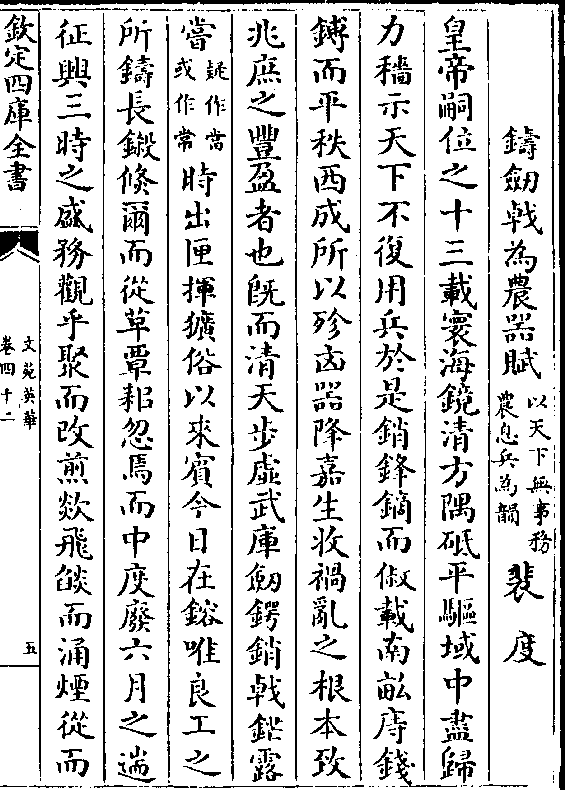 鑄劒㦸為農器賦以天下無事務農息兵為韻裴度
皇帝嗣位之十三載寰海鏡清方隅砥平驅域中盡歸
力穡示天下不復用兵於是銷鋒鏑而俶載南畝庤錢
鎛而平秩西成所以殄凶器降嘉生收禍亂之根本致
兆庶之豐盈者也旣而清天步虛武庫劒鍔銷㦸鋩露
嘗疑作當或作常時出匣揮獷俗以來賓今日在鎔唯良工之
所鑄長鍛倐爾而從革覃耜忽焉而中度廢六月之遄
征興三時之盛務觀乎聚而改煎欻飛燄而涌煙從而
欽定四庫全書
文苑英華
卷四十二
五